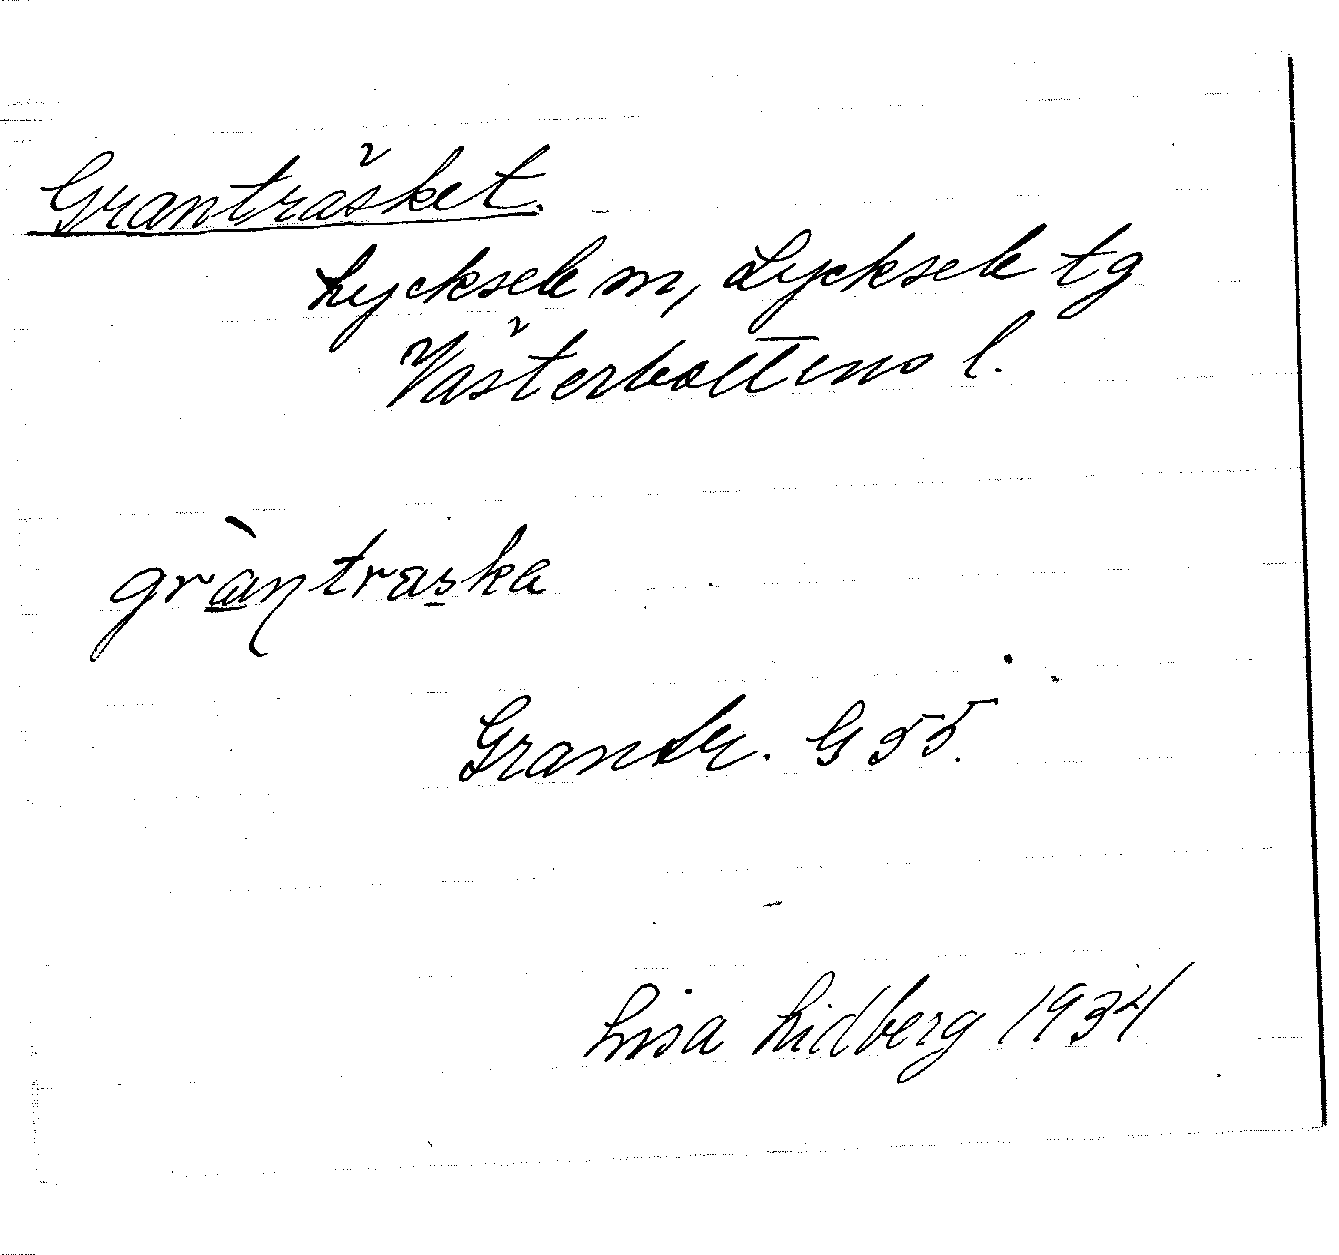 Granträsket.
Lycksele m, Lycksele tg
Västerbottens l.
gràntraska
Grantr. G 55.
Lisa Lidberg 1934